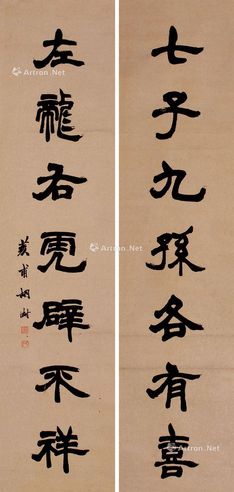 七子九孫各有喜
左龍右虎辟不祥
Artron.Net
Artron.Net
Artron.Net
Artron.Net